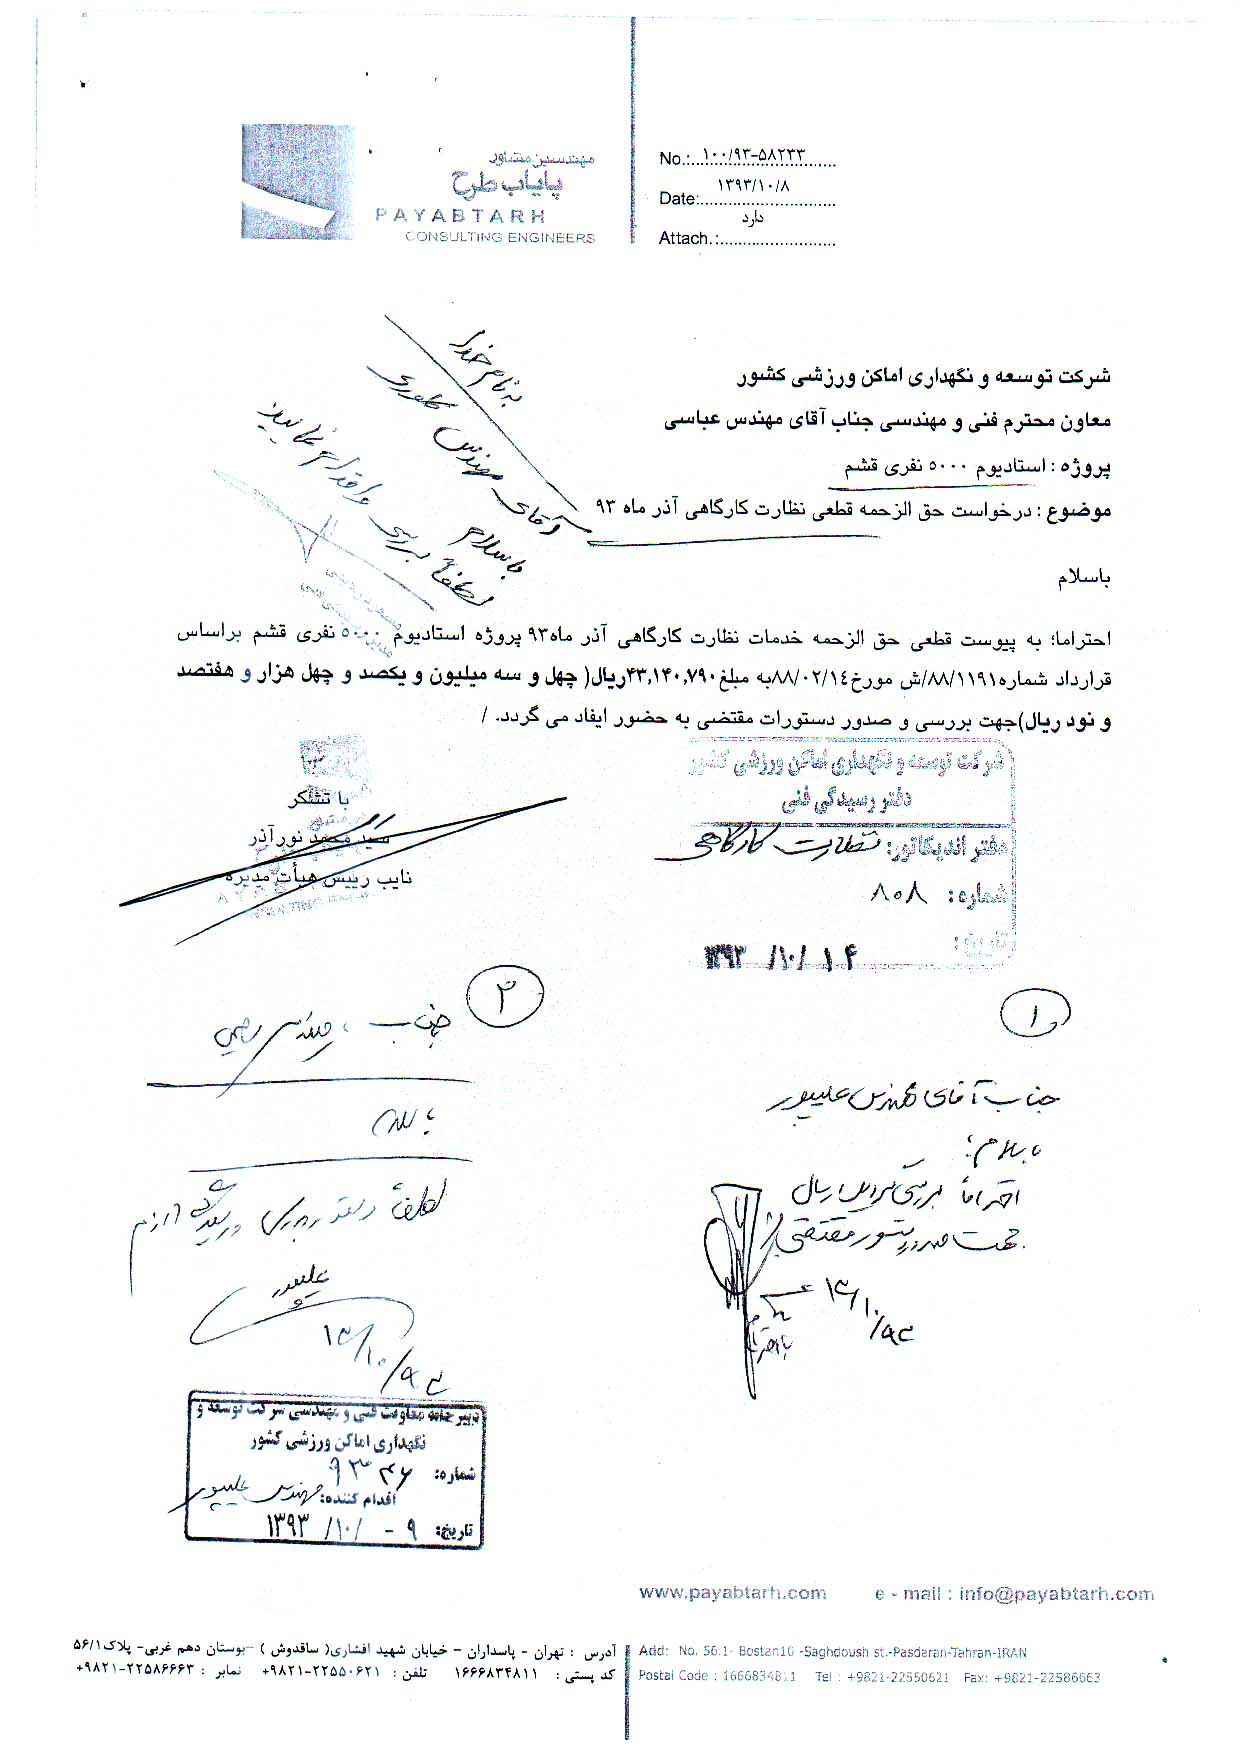 مهندسین مشاور
پایاب طرح
PAYABTARH
CONSULTING ENGINEERS
No.:...۱۰۰/۹۳-۵۸۲۳۳......
Date:...۱۳۹۳/۱۰/۸......
Attach.:...دارد......
بنام خدا
آقای مهندس
باسلام
لطفاً بررسی و اقدام نمایید
شرکت توسعه و نگهداری اماکن ورزشی کشور
معاون محترم فنی و مهندسی جناب آقای مهندس عباسی
پروژه : استادیوم ۵۰۰۰ نفری قشم
موضوع : درخواست حق الزحمه قطعی نظارت کارگاهی آذر ماه ۹۳
باسلام
احتراما؛ به پیوست قطعی حق الزحمه خدمات نظارت کارگاهی آذر ماه۹۳ پروژه استادیوم ۵۰۰۰ نفری قشم براساس
قرارداد شماره۸۸/۱۱۹۱/ش مورخ۸۸/۰۲/۱٤به مبلغ۴۳,۱۴۰,۷۹۰ریال( چهل و سه میلیون و یکصد و چهل هزار و هفتصد
و نود ریال)جهت بررسی و صدور دستورات مقتضی به حضور ایفاد می گردد. /
با تشکر
سید محمد نورآذر
نایب رییس هیأت مدیره
شرکت توسعه و نگهداری اماکن ورزشی کشور
دفتر رسیدگی فنی
دفتر اندیکاتور: نظارت کارگاهی
شماره: ۸۰۸
تاریخ: ۱۳۹۳/۱۰/۱۴
۱
جناب آقای مهندس علیپور
باسلام؛
احتراماً بررسی
جهت صدور دستور مقتضی
۱۳/۱۰/۹۳
با احترام
۲
جناب مهندس
باسلام
لطفاً
علیپور
۱۳/۱۰/۹۳
دبیرخانه معاونت فنی و مهندسی شرکت توسعه و
نگهداری اماکن ورزشی کشور
شماره: ۹۳۴۶
اقدام کننده: مهندس علیپور
تاریخ: ۹ - /۱۰/ ۱۳۹۳
www.payabtarh.com e - mail : info@payabtarh.com
آدرس : تهران - پاسداران - خیابان شهید افشاری( ساقدوش ) -بوستان دهم غربی- پلاک۵۶/۱
کد پستی : ۱۶۶۶۸۳۴۸۱۱ تلفن : ۲۲۵۵۰۶۲۱-۹۸۲۱+ نمابر : ۲۲۵۸۶۶۶۳-۹۸۲۱+
Add: No. 56.1- Bostan10 -Saghdoush st.-Pasdaran-Tahran-IRAN
Postal Code : 1666834811 Tel : +9821-22550621 Fax: +9821-22586663